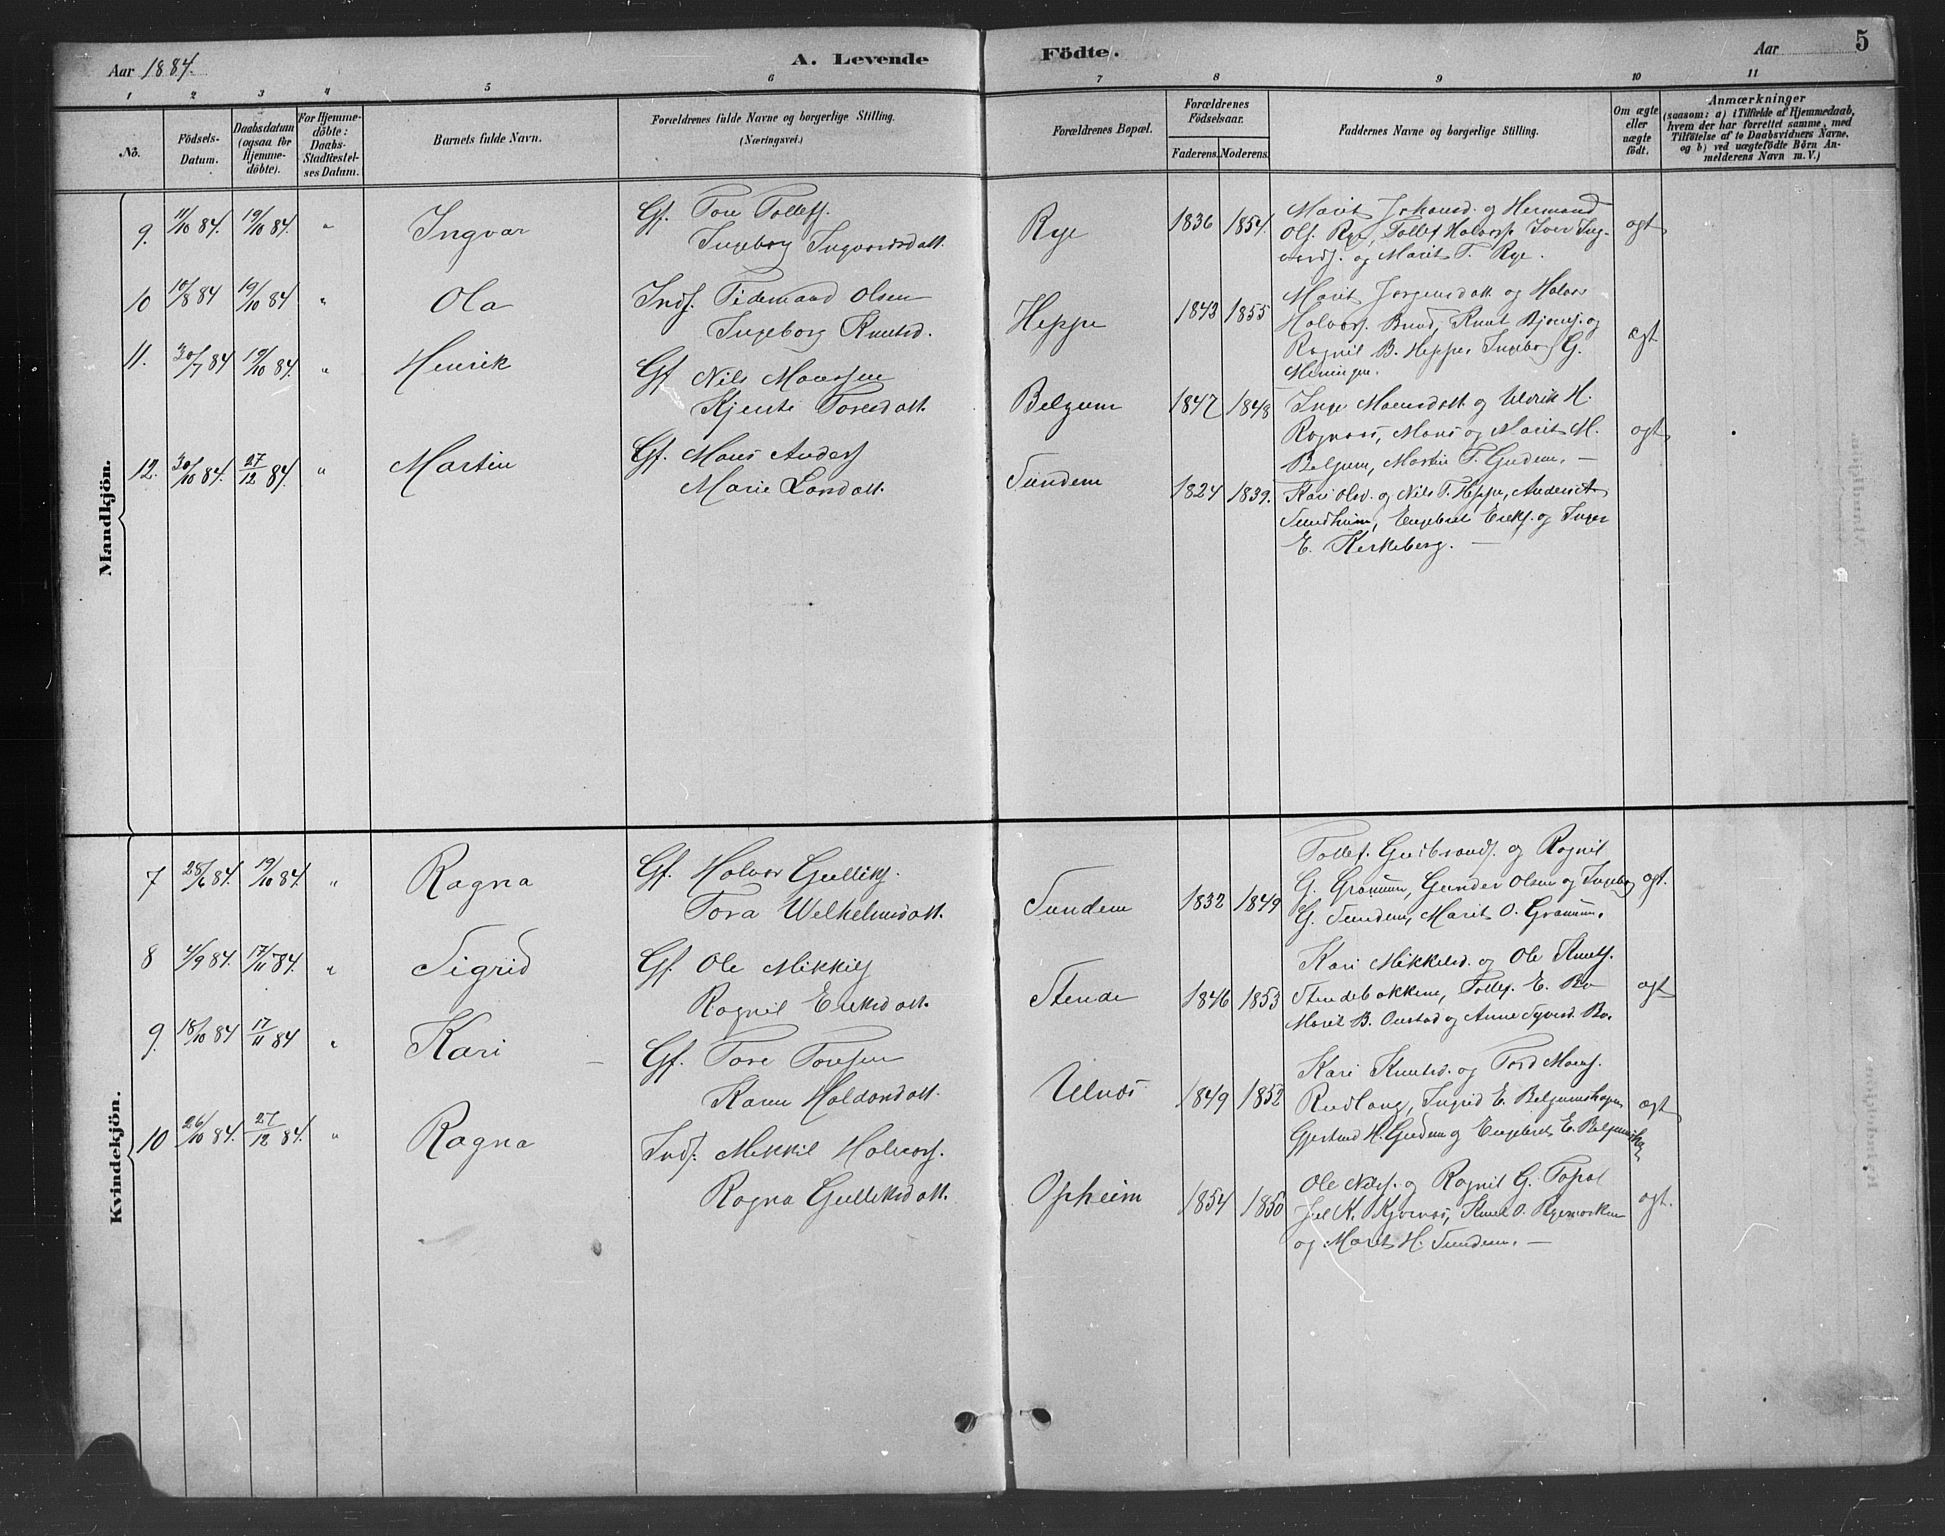 Aar 1884.
A. Levende
Födte.
Aar
5
1 2 3 4 5 6 7 8 9 10 11
No.
Födsels-
Datum.
Daabsdatum
(ogsaa for
Hjemme-
döbte).
For Hjemme-
döbte:
Daabs-
Stadfæstel-
ses Datum.
Barnets fulde Navn.
Forældrenes fulde Navne og borgerlige Stilling.
(Næringsvei.)
Forældrenes Bopæl.
Forældrenes
Födselsaar.
Faderens. Moderens.
Faddernes Navne og borgerlige Stilling.
Om ægte
eller
uægte
født.
Anmærkninger
(saasom: a) i Tilfælde af Hjemmedaab,
hvem der har forrettet samme, med
Tilföielse af to Daabsvidners Navne.
og b) ved uægtefödte Börn An-
melderens Navn m. V.)
Mandkjön.
9. 11/10 84. 19/10 84. " Ingvar
Gf. Tore Tollefs.
Ingeborg Ingvardsdatt.
Rye 1836 1854.
Marit Johansd. og Hermand
Ols. Rye, Tollef Halvors. Iver Ing-
vards. og Marit T. Rye.
ægt
10 10/8 84 19/10 84 " Ola
Inds. Tidemand Olsen
Ingeborg Knutsd.
Heppe 1843 1855
Marit Jørgensdatt. og Halvor
Halvors. Brud, Knut Bjørns. og
Ragnil B. Heppe, Ingeborg G.
ægt
11. 30/7 84 19/10 84. " Henrik
Gf Nils Monssen
Kjersti Toresdatt.
Belgum 1847 1848
Inge Monsdatt. og Ulrik H.
Mons og Marit M.
Belgum, Martin T. Gudem. —
ægt
12. 30/10 84. 27/12 84. " Martin
Gf. Mons Anders.
Marie Larsdatt.
Sundem 1824 1839.
Kari Olsd. og Nils T. Heppe, Anders A
Sundheim, Engebret Eriks. og Inger
E. Kirkeberg. —
Kvindekjön.
7 28/6 84. 19/10 84. " Ragna
Gf. Halvor Gulliks.
Tora Welhelmsdatt.
Sundem 1832 1849
Tollef Gudbrands. og Ragnil
G. Granum, Gunder Olsen og Ingeborg
G. Sundem, Marit O. Granum.
ægt.
8 4/9 84. 17/11 84. " Sigrid
Gf. Ole Mikkils.
Ragnil Eriksdatt.
Stende 1846 1853
Kari Mikkelsd. og Ole Knuts.
Stendebakkene, Tollef E. Bø
Marit B. Onstad og Anne Syversd. Bø.
ægt
9. 18/10 84 17/11 84 " Kari —
Gf. Tore Toresen
Karen Haldorsdatt.
Ulnæs 1849 1852
Kari Knutsd. og Tord Mons.
Rudlang, Ingrid E. Belgumshagen
Gjertrud H. Gudem og Engebret E. Belgumshag.
ægt
10 26/10 84. 27/12 84. " Ragna
Inds. Mikkil Halvors.
Ragna Gulliksdatt.
Opheim 1854 1850
Ole Nils. og Ragnil G. Fosshol
Joel K. Kjørnæs, Knut O. Ryemarken
og Marit H. Sundem. —
ægt.